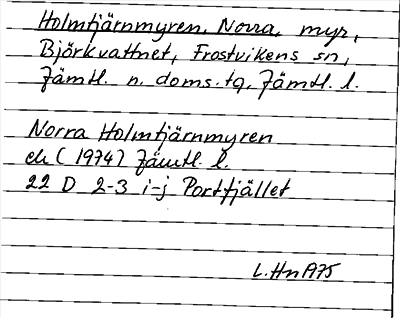 Holmtjärnmyren, Norra, myr,
Björkvattnet, Frostvikens sn,
Jämtl. n. doms. tg, Jämtl. l.
Norra Holmtjärnmyren
ek (1974) Jämtl. l.
22 D 2-3 i-j Portfjället
L. Hn A75